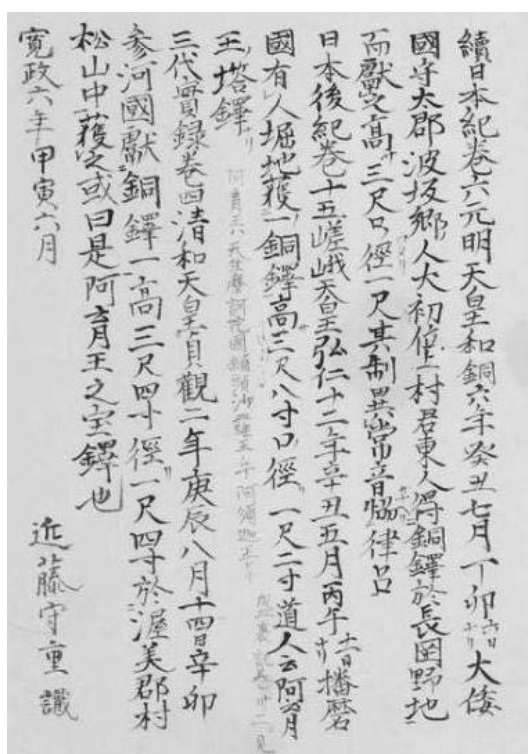 續日本紀卷六元明天皇和銅六年癸丑七月丁卯六日ナリ大倭
國宇太郡波坂郷人大初位上村君東人得銅鐸於長岡野地
而獻之高三尺口徑一尺其制異常音恊律呂
日本後紀卷十五嵯峨天皇弘仁十二年辛丑五月丙午十一日ナリ播磨
國有人堀地獲一銅鐸高三尺八寸口徑一尺二寸道人云阿育
王塔鐸
三代實録卷四清和天皇貞觀二年庚辰八月十四日辛卯
参河國獻銅鐸一高三尺四寸徑一尺四寸於渥美郡村
松山中獲之或曰是阿育王之宝鐸也
寛政六年甲寅六月
近藤守重識